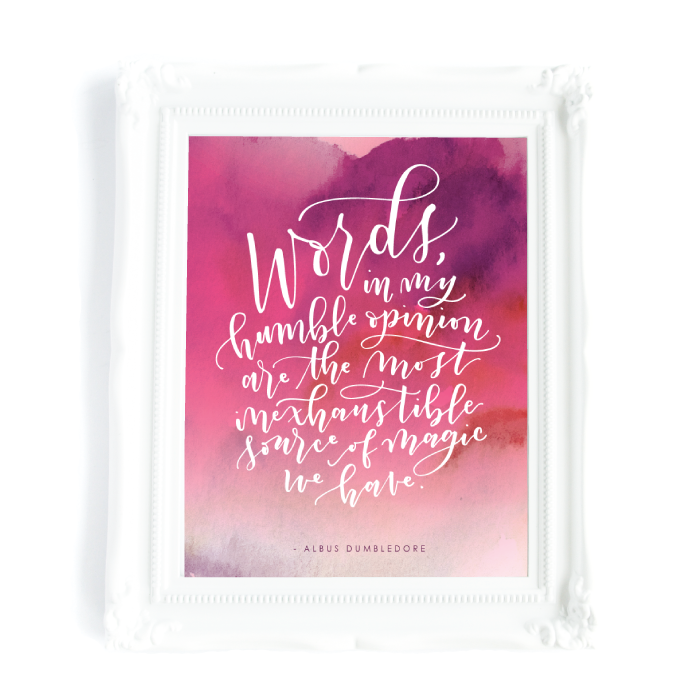 Words,
in my
humble opinion
are the most
inexhaustible
source of magic
we have.
- ALBUS DUMBLEDORE